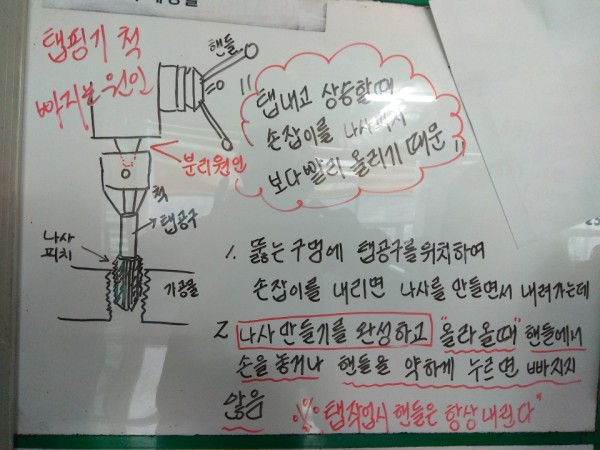 탭핑기 척
빠지는 원인
핸들
"탭내고 상승할때
손잡이를 나사피치
보다 빨리 올리기 때문"
분리원인
척
탭공구
나사
피치
가공물
1. 뚫는구멍에 탭공구를 위치하여
손잡이를 내리면 나사를 만들면서 내려가는데
2. 나사만들기를 완성하고 "올라올때" 핸들에서
손을 놓거나 핸들을 약하게 누르면 빠지지
않음
※ 탭작업시 핸들은 항상 내린다"